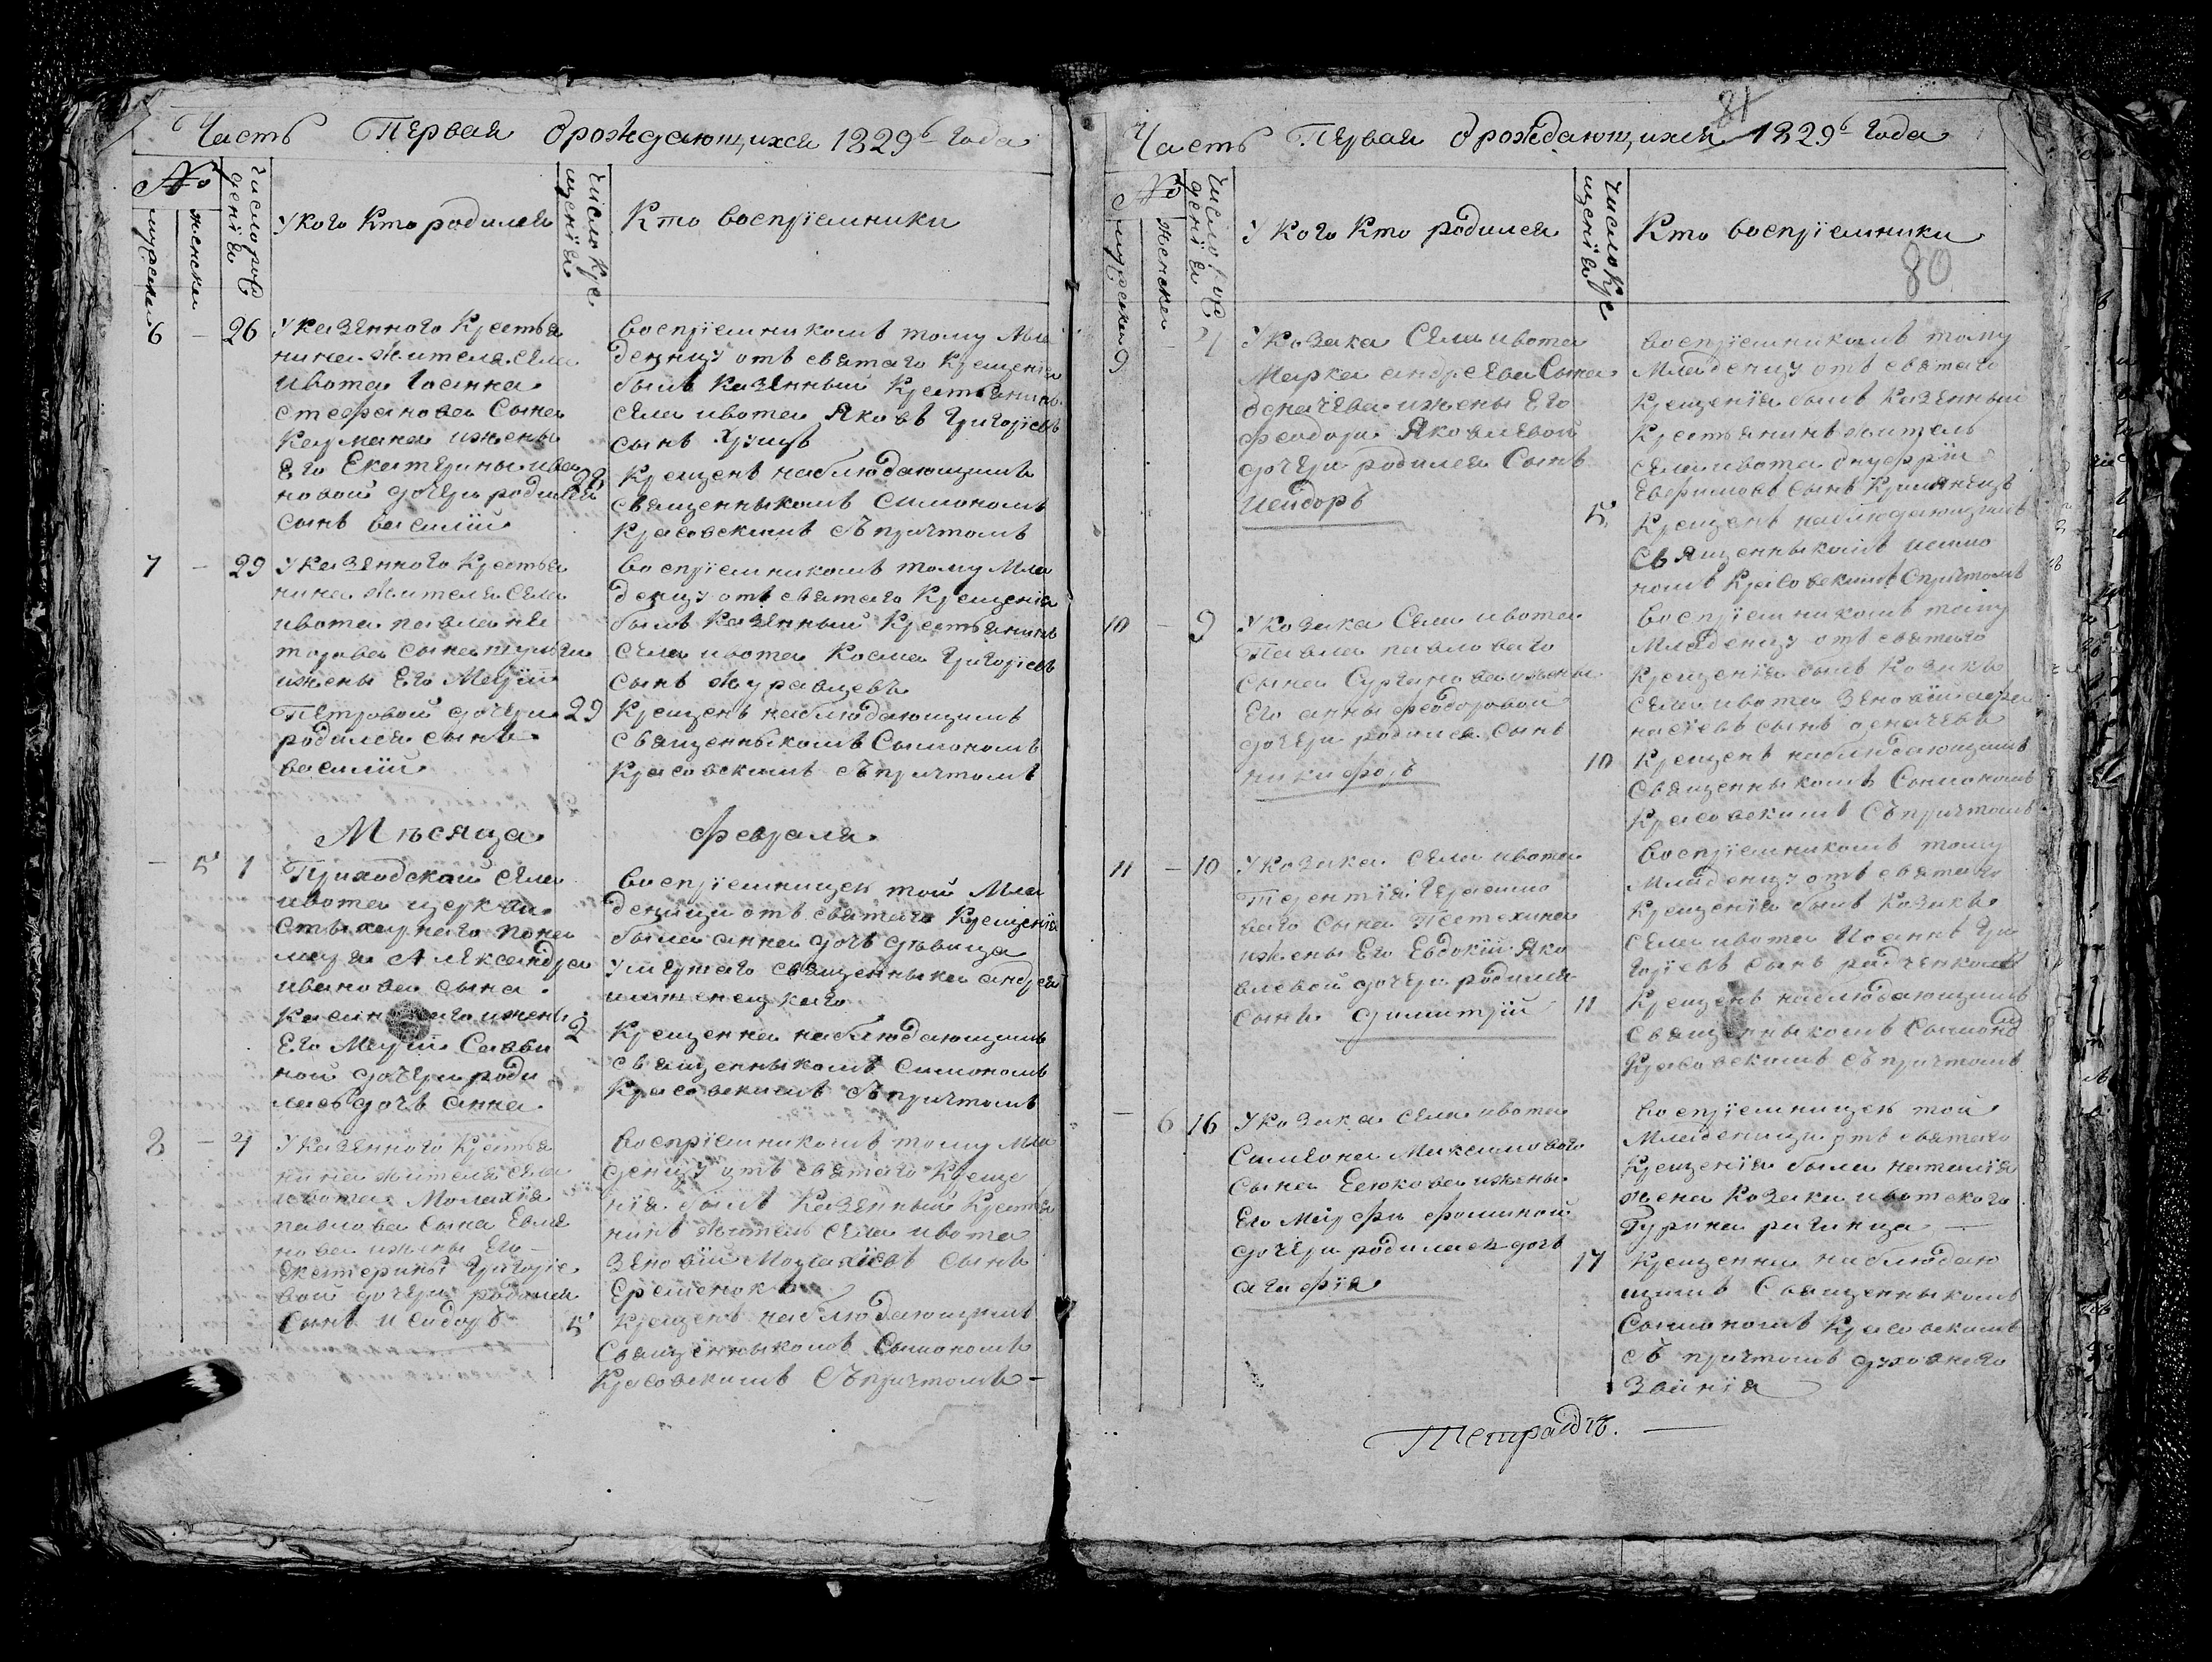 Часть Первая о рождающихся 1829 года
№
мужеска
женска
Число рож
денія
У кого Кто родился
Число кре
щенія
Кто воспріемники
6 – 26 У казенного Крестья
нина жителя села
Ивота Іоанна
Стефанова Сына
Каумана и жены
Его Екатерины Ива
новой дочери родился
Сынъ василій
28
воспріемникомъ тому Мла
денцу отъ святаго крещенія
былъ казенный крестьянинъ
села ивота Яковъ Григоріевъ
сынъ Хунцъ
Крещенъ наблюдающимъ
священникомъ Симономъ
Красовскимъ съ причтомъ
7 – 29 У казенного Крестья
нина жителя села
ивота павла не
торова сына
и жены Его Маріи
Петровой дочери
родился сынъ
василій
29
воспріемникомъ тому Мла
денцу отъ святаго Крещенія
былъ казенный Крестьянинъ
Села ивота Косма Григоріевъ
сынъ Журавцевъ
Крещенъ наблюдающимъ
священникомъ Симономъ
Красовскимъ съ причтомъ
Мѣсяца февраля
– 5 1 Приходской села
ивота церкви
Стихарнаго поно
маря Александра
иванова сына
и жены
Его Маріи Савви
ной дочери роди
лась дочь анна
2
воспріемницею той Мла
деницы отъ святаго Крещенія
была анна дочь дѣвица
умершаго священника андрея

Крещенна наблюдающимъ
священникомъ Симономъ
Красовскимъ съ причтомъ
8 – 4 У казенного Крестья
нина жителя села
ивота Малахія
павлова сына Емя
нова и жены Его
Екатерины Григоріе
вой дочери родился
Сынъ Исидоръ
5
воспріемникомъ тому Мла
денцу отъ святаго Креще
нія былъ Казенный Крестья
нинъ житель села ивота
Зеновій сынъ
Еременокъ
Крещенъ наблюдающимъ
Священникомъ Симономъ
Красовскимъ съ причтомъ –
81
Часть Первая о рождающихся 1829 года
№
мужеска
женска
Число рож
денія
У кого Кто родился
Число кре
щенія
Кто воспріемники
80
9 – 4 У козака Села ивота
Марка андреева Сына
осначева и жены Его
феодоры Яковлевой
дочери родился Сынъ
Исидоръ
5
воспріемникомъ тому
Младенцу отъ святаго
крещенія былъ казенный
Крестьянинъ житель
села ивота онуфрій
Евфимовъ сынъ
Крещенъ наблюдающимъ
Священникомъ Исимо
номъ Красовскимъ Спричтомъ
10 – 9 У козака Села ивота
Павла павловаго
сына Сурганова и жены
Его анны феодоровой
дочери родился сынъ
никифоръ
10
воспріемникомъ тому
Младенцу отъ святаго
крещенія былъ козакъ
села ивота Зеновій афа
насіевъ сынъ осначевъ
Крещенъ наблюдающимъ
Священникомъ Симономъ
Красовскимъ Съ причтомъ
11 – 10 У козака села ивота
Терентія Герасимо
ваго Сына Пстехина
и жены Его Евдокіи Яко
влевой дочери родился
сынъ димитрій
11
воспріемникомъ тому
Младенцу отъ святаго
Крещенія былъ козакъ
села ивота Иоаннъ Гри
горіевъ сынъ радченковъ
Крещенъ наблюдающимъ
Священникомъ Симоном
Красовскимъ съ причтомъ
– 6 16 У козака села ивота
Симеона Максимоваго
сына Есюкова и жены
Его Марфы фоминой
дочери родилась дочь
агафія
17
воспріемницею той
Младеницы отъ святаго
крещенія была наталія
жена козака ивотского
Гурина
Крещенна наблюдаю
щимъ Священникомъ
Симономъ Красовскимъ
съ причтомъ духовнаго
Званія
Тетрадь. —